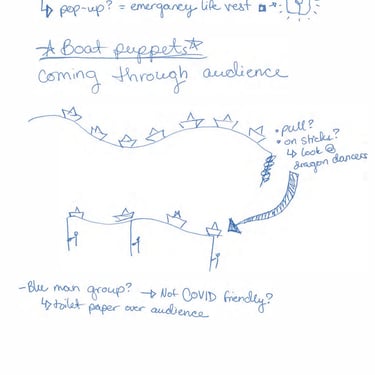 ↳ pop-up? = emergancy life vest
☆Boat puppets☆
coming through audience
• pull?
• on sticks?
↳ look @
dragon dancers
- Blue man group? → Not COVID friendly?
↳ toilet paper over audience